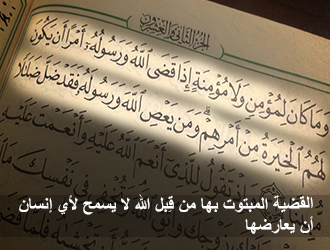 الجزء الثاني والعشرون
وَمَا كَانَ لِمُؤْمِنٍ وَلَا مُؤْمِنَةٍ إِذَا قَضَى ٱللَّهُ وَرَسُولُهُۥٓ أَمْرًا أَن يَكُونَ
لَهُمُ ٱلْخِيَرَةُ مِنْ أَمْرِهِمْ ۗ وَمَن يَعْصِ ٱللَّهَ وَرَسُولَهُۥ فَقَدْ ضَلَّ ضَلَٰلًا
وَإِذْ تَقُولُ لِلَّذِىٓ أَنْعَمَ ٱللَّهُ عَلَيْهِ وَأَنْعَمْتَ عَلَيْهِ
القضية المبتوت بها من قبل الله لا يسمح لأي إنسان
أن يعارضها